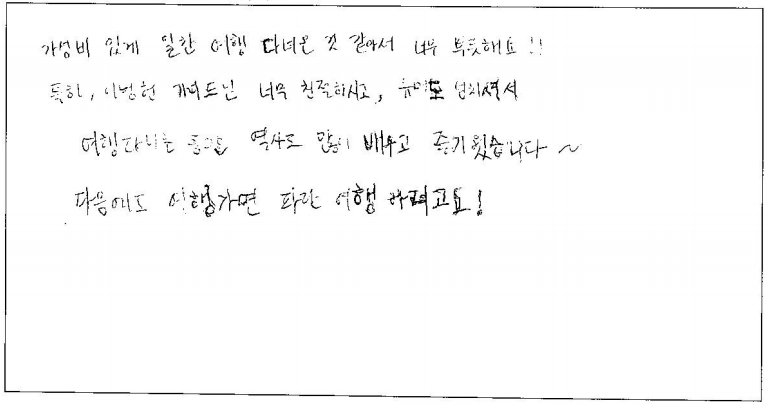 가성비 있게 알찬 여행 다녀온 것 같아서 너무 뿌듯해요!!
특히, 이병헌 가이드님 너무 친절하시고, 유머도 넘치셔서
여행다니는 동안 역사도 많이 배우고 즐거웠습니다~
다음에도 여행가면 파란 여행 하려고요!